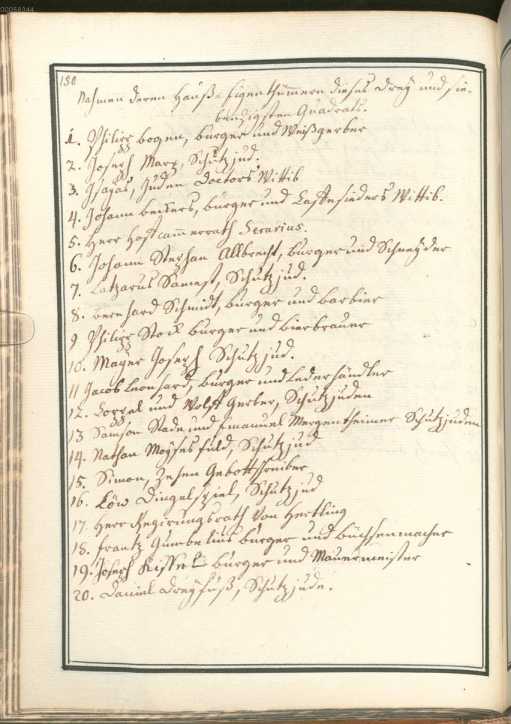 00056344
150
Nahmen deren Hauß-Eigenthümern dieses drey und sie-
benzigsten Quadrats.
1. Philipp bogen, burger und Weißgerber
2. Joseph Marx, Schutzjud.
3. Isayas, Juden Doctors Wittib
4. Johann beckers, burger und Wittib.
5. Herr Hofcammerrath
6. Johann Stephan Allbrecht, burger und Schneyder
7. Lazarus Schutzjud.
8. bernhard Schmidt, burger und barbier
9 Philipp Stock burger und bierbrauer
10. Mayer Joseph Schutzjud.
11 Jacob Leonhard, burger und Lederhändler
12. und Wolff Gerber, Schutzjuden
13 Samson und Emanuel Mergentheimer Schutzjuden
14. Nathan Moyses fuld, Schutzjud
15. Simon, Zehen Gebottschreiber
16. Löw Dingelspiel, Schutzjud
17. Herr Regierungsrath von Hertling
18. Frantz Gumbelius burger und büchsenmacher
19. Joseph burger und Mauermeister
20. Daniel Dreyfuß, Schutzjude.